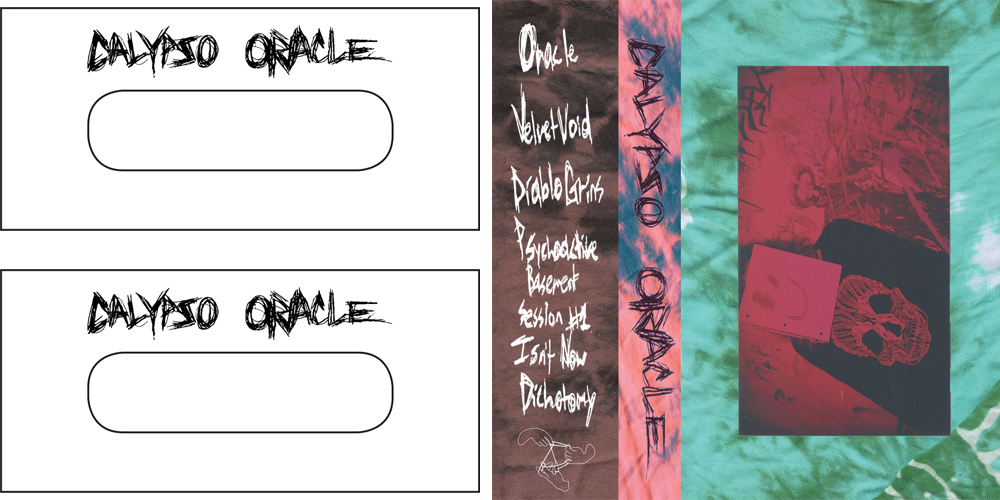 CALYPSO ORACLE
CALYPSO ORACLE
Oracle
Velvet Void
Diablo Grins
Psychoactive
Basement
Session #1
Isn't Now
Dichotomy
CALYPSO ORACLE